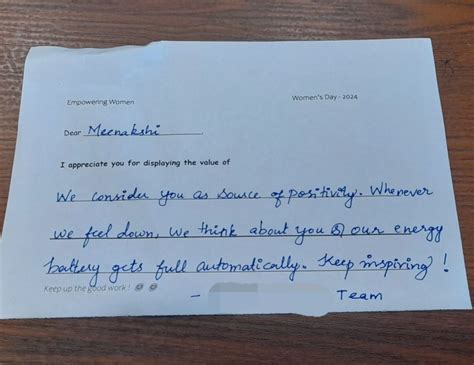 Empowering Women
Women's Day - 2024
Dear Meenakshi
I appreciate you for displaying the value of
We consider you as source of positivity. Whenever
we feel down, we think about you & our energy
battery gets full automatically. Keep inspiring!
Keep up the good work!
- Team